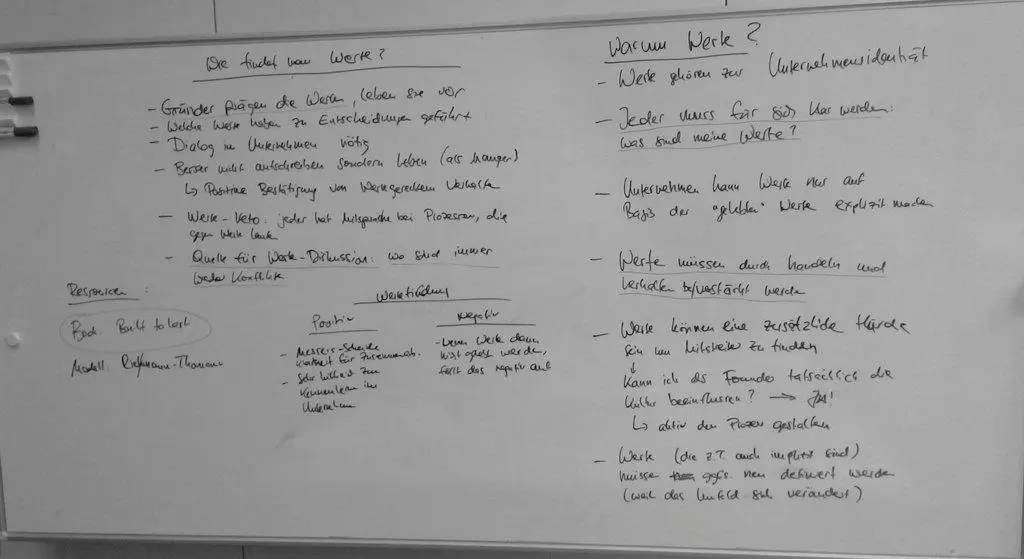 Wie findet man Werte?
- Gründer prägen die Werte, leben sie vor
- Welche Werte haben zu Entscheidungen geführt
- Dialog im Unternehmen nötig
- Besser nicht aufschreiben sondern leben (als Manager)
↳ Positive Bestätigung von Wertegerechtem Verhalten
- Werte-Veto: jeder hat Mitsprache bei Prozessen, die
gegen Werte laufen
- Quelle für Werte-Diskussion: wo sind immer
wieder Konflikte
Ressourcen:
Book: Built to last
Modell: Riemann-Thomann
Wertefindung
Positiv
- Messers-Schneide
für Zusammenarb.
- Sehr hilfreich zum
Kennenlernen im
Unternehmen
Negativ
- Wenn Werte dann
nicht gelebt werden,
fällt das negativ auf
Warum Werte?
- Werte gehören zur Unternehmensidentität
- Jeder muss für sich klar werden:
was sind meine Werte?
- Unternehmen kann Werte nur auf
Basis der "gelebten" Werte explizit machen
- Werte müssen durch handeln und
verhalten verstärkt werden
- Werte können eine zusätzliche Hürde
sein um Mitstreiter zu finden
↓
Kann ich als Founder tatsächlich die
Kultur beeinflussen? → JA!
↳ aktiv den Prozess gestalten
- Werte (die z.T. auch implizit sind)
müssen ggfs. neu definiert werden
(weil das Umfeld sich verändert)